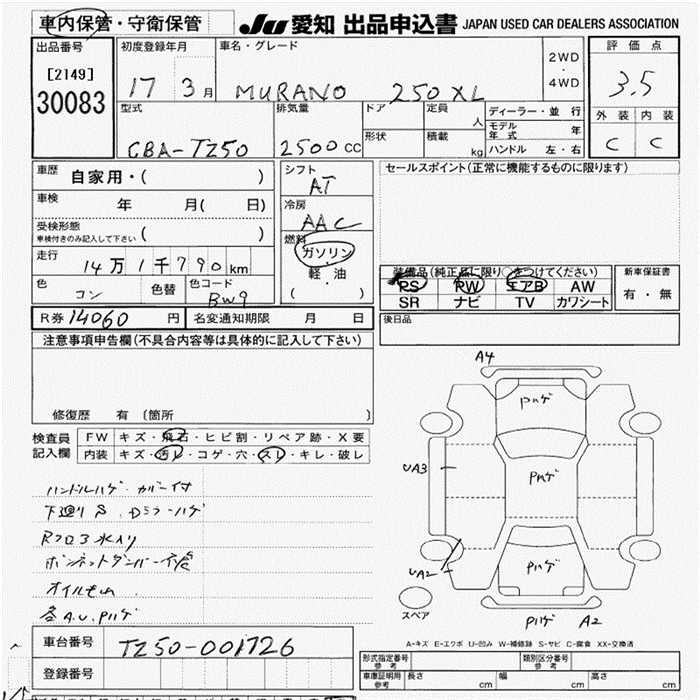 車内保管・守衛保管
JU 愛知 出品申込書 JAPAN USED CAR DEALERS ASSOCIATION
出品番号
[2149]
30083
初度登録年月
17 3月
車名・グレード
MURANO 250XL
2WD
・
4WD
評価点
3.5
外装 内装
C C
型式
CBA-TZ50
排気量
2500CC
ドア
定員
人
形状
積載
kg
ディーラー・並行
モデル年式 年
ハンドル 左・右
車歴
自家用・( )
車検
年 月( 日)
受検形態
車検付きのみ記入して下さい ( )
走行
14万1千790km
色
コン
色替
色コード
BW9
シフト
AT
冷房
AAC
燃料
ガソリン
軽・油
( )
セールスポイント(正常に機能するものに限ります)
装備品(純正品に限り○をつけてください)
PS PW エアB AW
SR ナビ TV カワシート
新車保証書
有・無
後日品
R券 14060円 名変通知期限 月 日
注意事項申告欄(不具合内容等は具体的に記入して下さい)
修復歴 有 〔箇所 〕
検査員記入欄
FW キズ・飛石・ヒビ割・リペア跡・X要
内装 キズ・汚レ・コゲ・穴・スレ・キレ・破レ
ハンドルハゲ カバー付
下廻りS Dミラーハゲ
Rフロ3水入り
ボンネットダンパー不良
オイルモレ
各A.U.Pハゲ
A4
Pハゲ
UA3
Pハゲ
UA2
Pハゲ
スペア
Pハゲ A2
A-キズ E-エクボ U-凹み W-補修跡 S-サビ C-腐食 XX-交換済
車台番号
TZ50-001726
登録番号
形式指定番号
参考
類別区分番号
参考
車庫証明用
参考
長さ cm 幅 cm 高さ cm